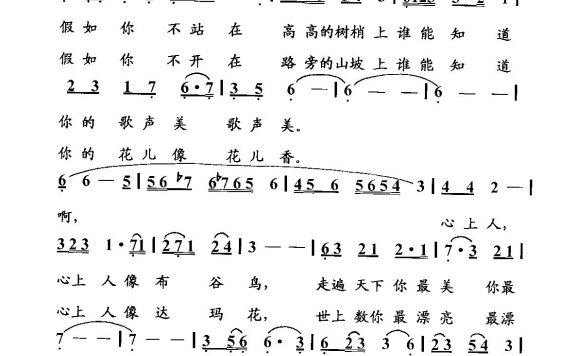 假如你 不站在 高高的树梢上谁能知道
假如你 不开在 路旁的山坡上谁能知道
2 3 1 7 6·7 | 3 5 6 — — | 6 — — | 6 — — |
你的歌声美 歌声美。
你的花儿像 花儿香。
6 6 — 5 | 5 6 6 ♭7 6 ♭7 6 5 6 | 4 5 6 5 6 5 4 3 | 4 4 2 — |
啊， 心上人，
3 2 3 1·7 1 | 2 7 1 2 4 | 3 — — | 6 3 2 1 2·1 | 7·3 2 1 |
心上人像布谷鸟， 走遍天下你最美 你最
心上人像达玛花， 世上数你最漂亮 最漂
7 — — | 7 — — | 3 5 6 6·3 |